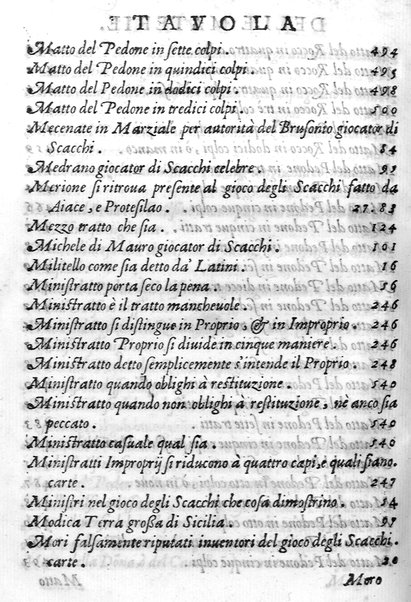 TAVOLA
Matto del Pedone in sette colpi. 494
Matto del Pedone in quindici colpi. 495
Matto del Pedone in dodici colpi. 498
Matto del Pedone in tredici colpi. 500
Mecenate in Marziale per autorità del Brusonio giocator di
Scacchi. 84
Medrano giocator di Scacchi celebre. 95
Merione si ritroua presente al gioco degli Scacchi fatto da
Aiace, e Protesilao. 27. 83
Mezzo tratto che sia. 124
Michele di Mauro giocator di Scacchi. 101
Militello come sia detto da' Latini. 16
Ministratto porta seco la pena. 56
Ministratto è il tratto mancheuole. 246
Ministratto si distingue in Proprio, & in Improprio. 246
Ministratto Proprio si diuide in cinque maniere. 246
Ministratto detto semplicemente s'intende il Proprio. 248
Ministratto quando oblighi à restituzione. 540
Ministratto quando non oblighi à restituzione, nè anco sia
peccato. 540
Ministratto casuale qual sia. 540
Ministratti Improprij si riducono à quattro capi, e quali siano.
carte. 247
Ministri nel gioco degli Scacchi che cosa dimostrino. 54
Modica Terra grossa di Sicilia. 97
Mori falsamente riputati inuentori del gioco degli Scacchi.
carte. 30
Moro